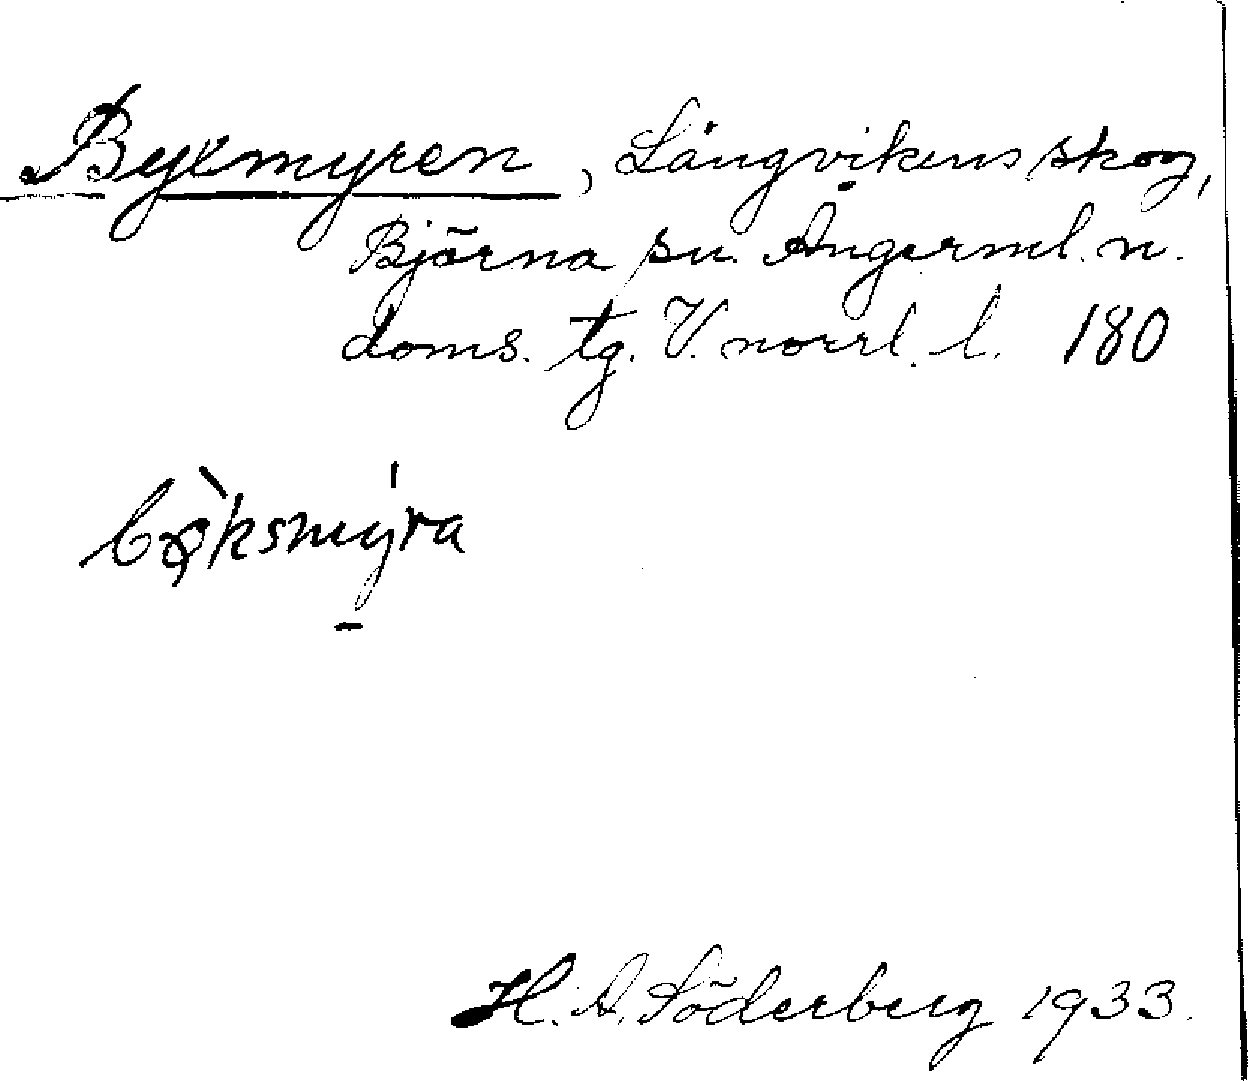 Byxmyren, Långvikens skog,
Björna sn. Ångerml. n.
doms. tg. V. norrl. l. 180
H. A. Söderberg 1933.